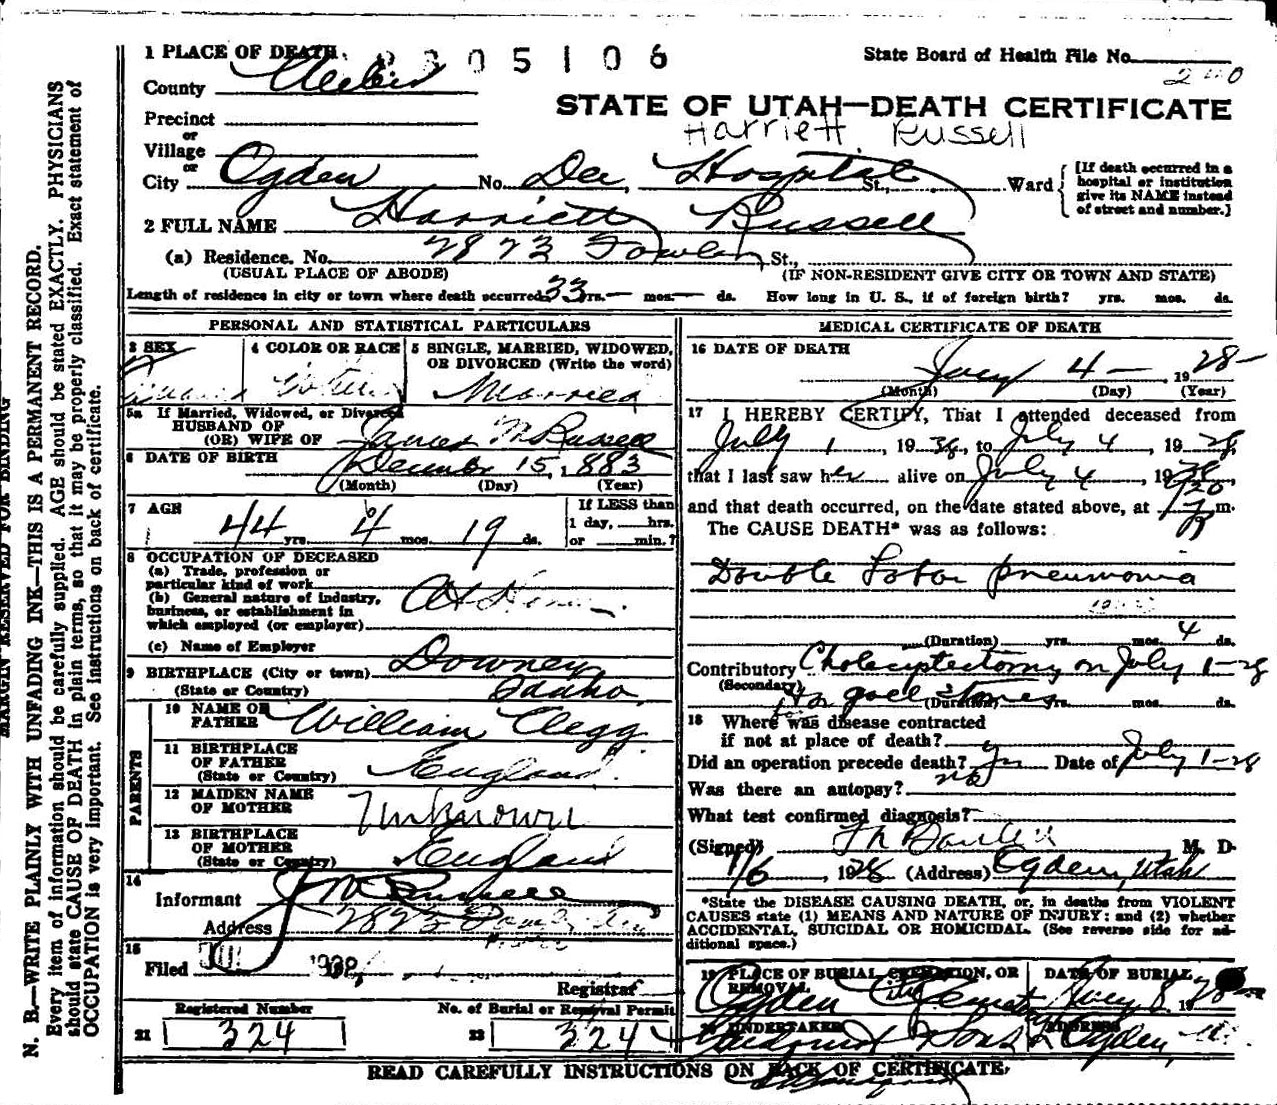 1 PLACE OF DEATH 305106
State Board of Health File No. 240
County Weber
STATE OF UTAH—DEATH CERTIFICATE
Precinct
Harriett Russell
or
Village
or
City Ogden No. Dee Hospital St., Ward
[If death occurred in a
hospital or institution
give its NAME instead
of street and number.]
2 FULL NAME Harriett Russell
(a) Residence. No. 2873 Fowler St.,
(USUAL PLACE OF ABODE) (IF NON-RESIDENT GIVE CITY OR TOWN AND STATE)
Length of residence in city or town where death occurred 33 yrs. — mos. — ds. How long in U. S., if of foreign birth? yrs. mos. ds.
PERSONAL AND STATISTICAL PARTICULARS
3 SEX 4 COLOR OR RACE 5 SINGLE, MARRIED, WIDOWED,
OR DIVORCED (Write the word)
Married
5a If Married, Widowed, or Divorced
HUSBAND OF
(OR) WIFE OF James M Russell
6 DATE OF BIRTH December 15, 1883
(Month) (Day) (Year)
7 AGE 44 yrs. mos. 19 ds.
If LESS than
1 day, hrs.
or min.?
8 OCCUPATION OF DECEASED
(a) Trade, profession or
particular kind of work
(b) General nature of industry,
business, or establishment in
which employed (or employer)
At Home
(c) Name of Employer
9 BIRTHPLACE (City or town) Downey
(State or Country) Idaho
PARENTS
10 NAME OF
FATHER William Clegg
11 BIRTHPLACE
OF FATHER
(State or Country) England
12 MAIDEN NAME
OF MOTHER Unknown
13 BIRTHPLACE
OF MOTHER
(State or Country) England
14
Informant J M Russell
Address 2873
15
Filed JUL 1928
Registrar
Registered Number No. of Burial or Removal Permit
21 324 22 324
MEDICAL CERTIFICATE OF DEATH
16 DATE OF DEATH
July 4 — , 1928
(Month) (Day) (Year)
17 I HEREBY CERTIFY, That I attended deceased from
July 1, 1928, to July 4, 1928,
that I last saw her alive on July 4, 1928,
and that death occurred, on the date stated above, at m.
The CAUSE DEATH* was as follows:
Double Lobar pneumonia
(Duration) yrs. mos. 4 ds.
Contributory Cholecystectomy on July 1-28
(Secondary) for gall stones
(Duration) yrs. mos. ds.
18 Where was disease contracted
if not at place of death?
Did an operation precede death? yes Date of July 1-28
Was there an autopsy? no
What test confirmed diagnosis?
(Signed) M. D.
1928 (Address) Ogden, Utah
*State the DISEASE CAUSING DEATH, or, in deaths from VIOLENT
CAUSES state (1) MEANS AND NATURE OF INJURY; and (2) whether
ACCIDENTAL, SUICIDAL OR HOMICIDAL. (See reverse side for ad-
ditional space.)
19 PLACE OF BURIAL, CREMATION, OR
REMOVAL DATE OF BURIAL
Ogden City July 8, 1928
20 UNDERTAKER ADDRESS
& Sons Ogden,
READ CAREFULLY INSTRUCTIONS ON BACK OF CERTIFICATE.
MARGIN RESERVED FOR BINDING
N. B.—WRITE PLAINLY WITH UNFADING INK—THIS IS A PERMANENT RECORD.
Every item of information should be carefully supplied. AGE should be stated EXACTLY. PHYSICIANS
should state CAUSE OF DEATH in plain terms, so that it may be properly classified. Exact statement of
OCCUPATION is very important. See instructions on back of certificate.